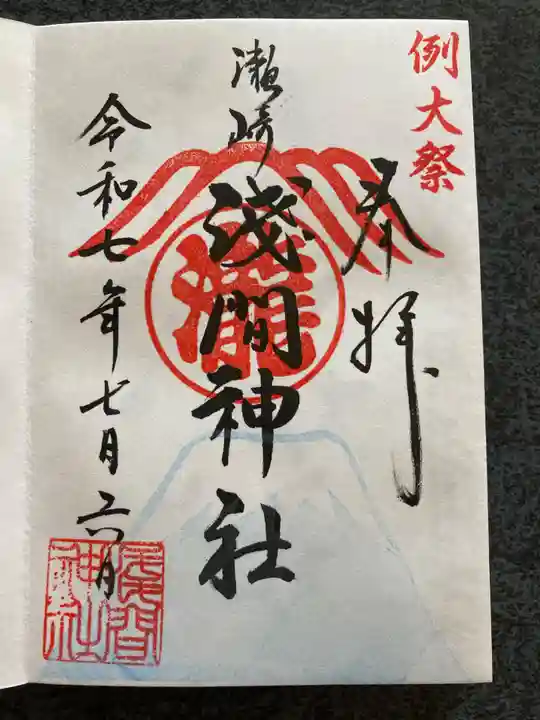 例大祭
奉拝
瀬崎
浅間神社
令和七年七月六日
瀧
浅間神社